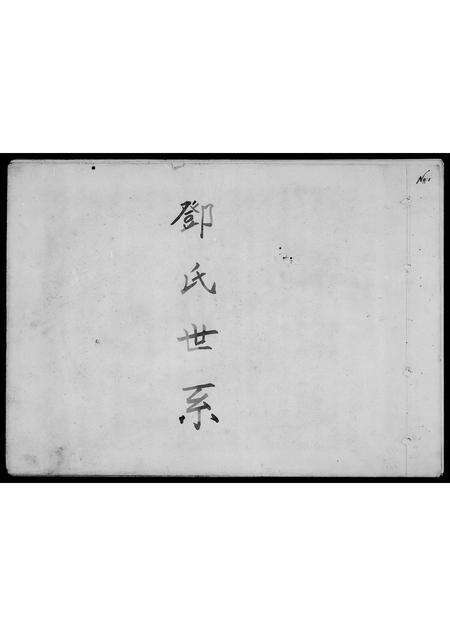 鄧氏世系
No.1